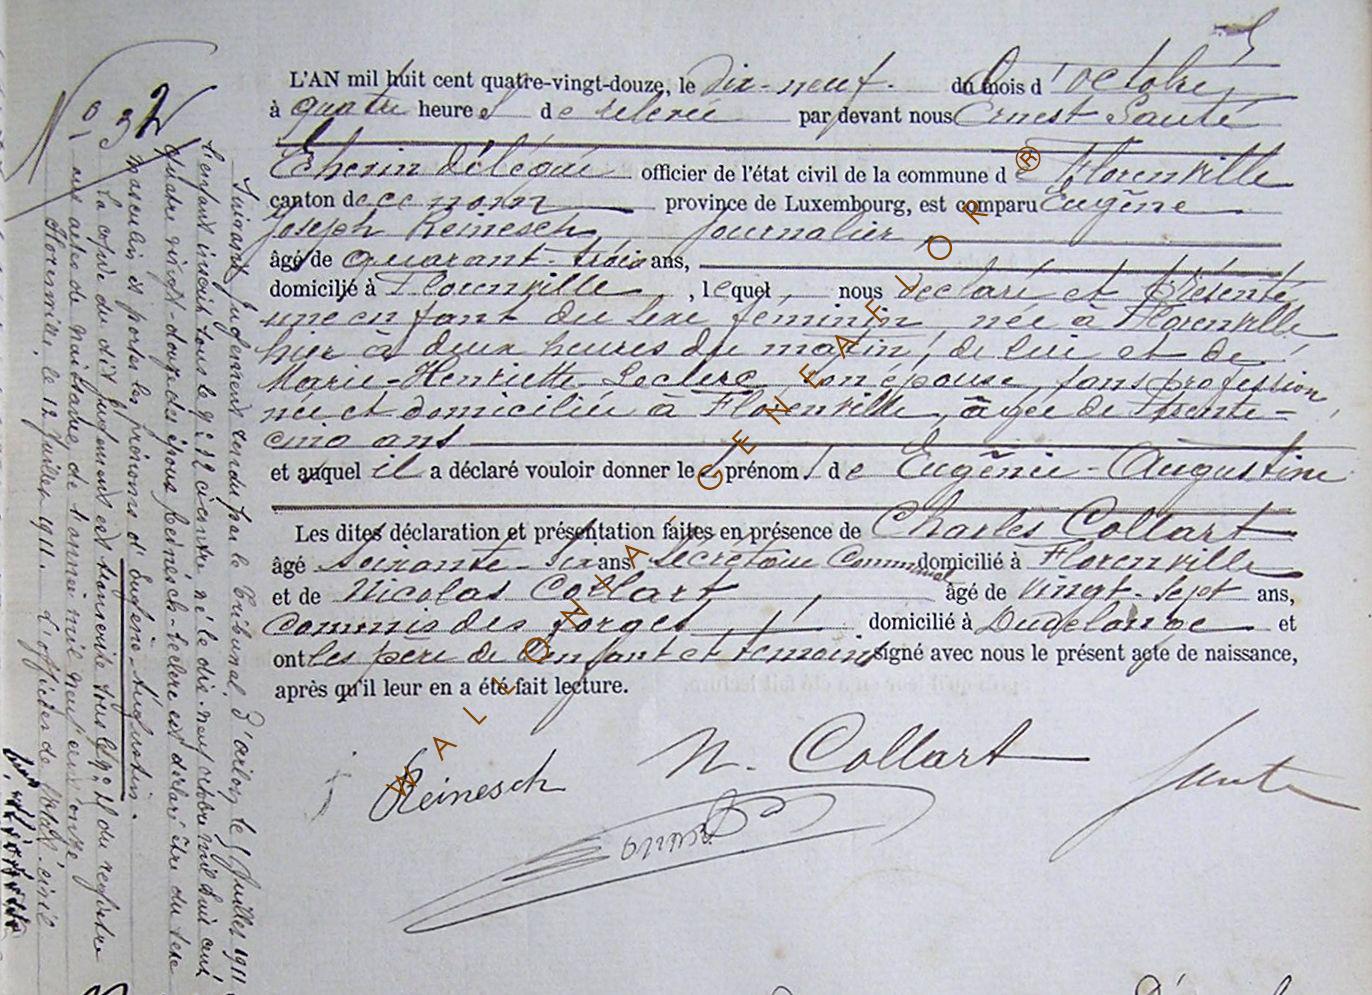 N° 32
L'AN mil huit cent quatre-vingt-douze, le dix-neuf du mois d'octobre
à quatre heures de relevée par devant nous Ernest Santé
Echevin délégué officier de l'état civil de la commune de Florenville
canton de ce nom province de Luxembourg, est comparu Eugène
Joseph Reinesch, journalier,
âgé de quarant-trois ans,
domicilié à Florenville, lequel nous déclaré et présenté
une enfant du sexe feminin, née à Florenville
hier à deux heures du matin, de lui et de
Marie-Henriette Leclerc, son épouse, sans profession,
née et domiciliée à Florenville, âgée de trente-
cinq ans
et auquel il a déclaré vouloir donner les prénoms de Eugénie-Augustine
Les dites déclaration et présentation faites en présence de Charles Collart
âgé soixante-six ans secrétaire communal domicilié à Florenville
et de Nicolas Collart, âgé de vingt-sept ans,
commis des forges, domicilié à Dudelange et
ont les père de l'enfant et témoins signé avec nous le présent acte de naissance,
après qu'il leur en a été fait lecture.
Reinesch
N. Collart
Suivant jugement rendu par le tribunal d'Arlon le 5 juillet 1911
l'enfant inscrit sous le n° 32 ci-contre né le dix-neuf octobre mil huit cent
quatre vingt douze des époux Reinesch-Leclerc est déclaré être du sexe
masculin et porter les prénoms d'Eugène-Augustin.
La copie du dit jugement est transcrite sous le n° 21 du registre
aux actes de naissance de l'année mil neuf cent onze
Florenville, le 12 juillet 1911. L'officier de l'état civil
WALLONIA GENEAFLOR ®